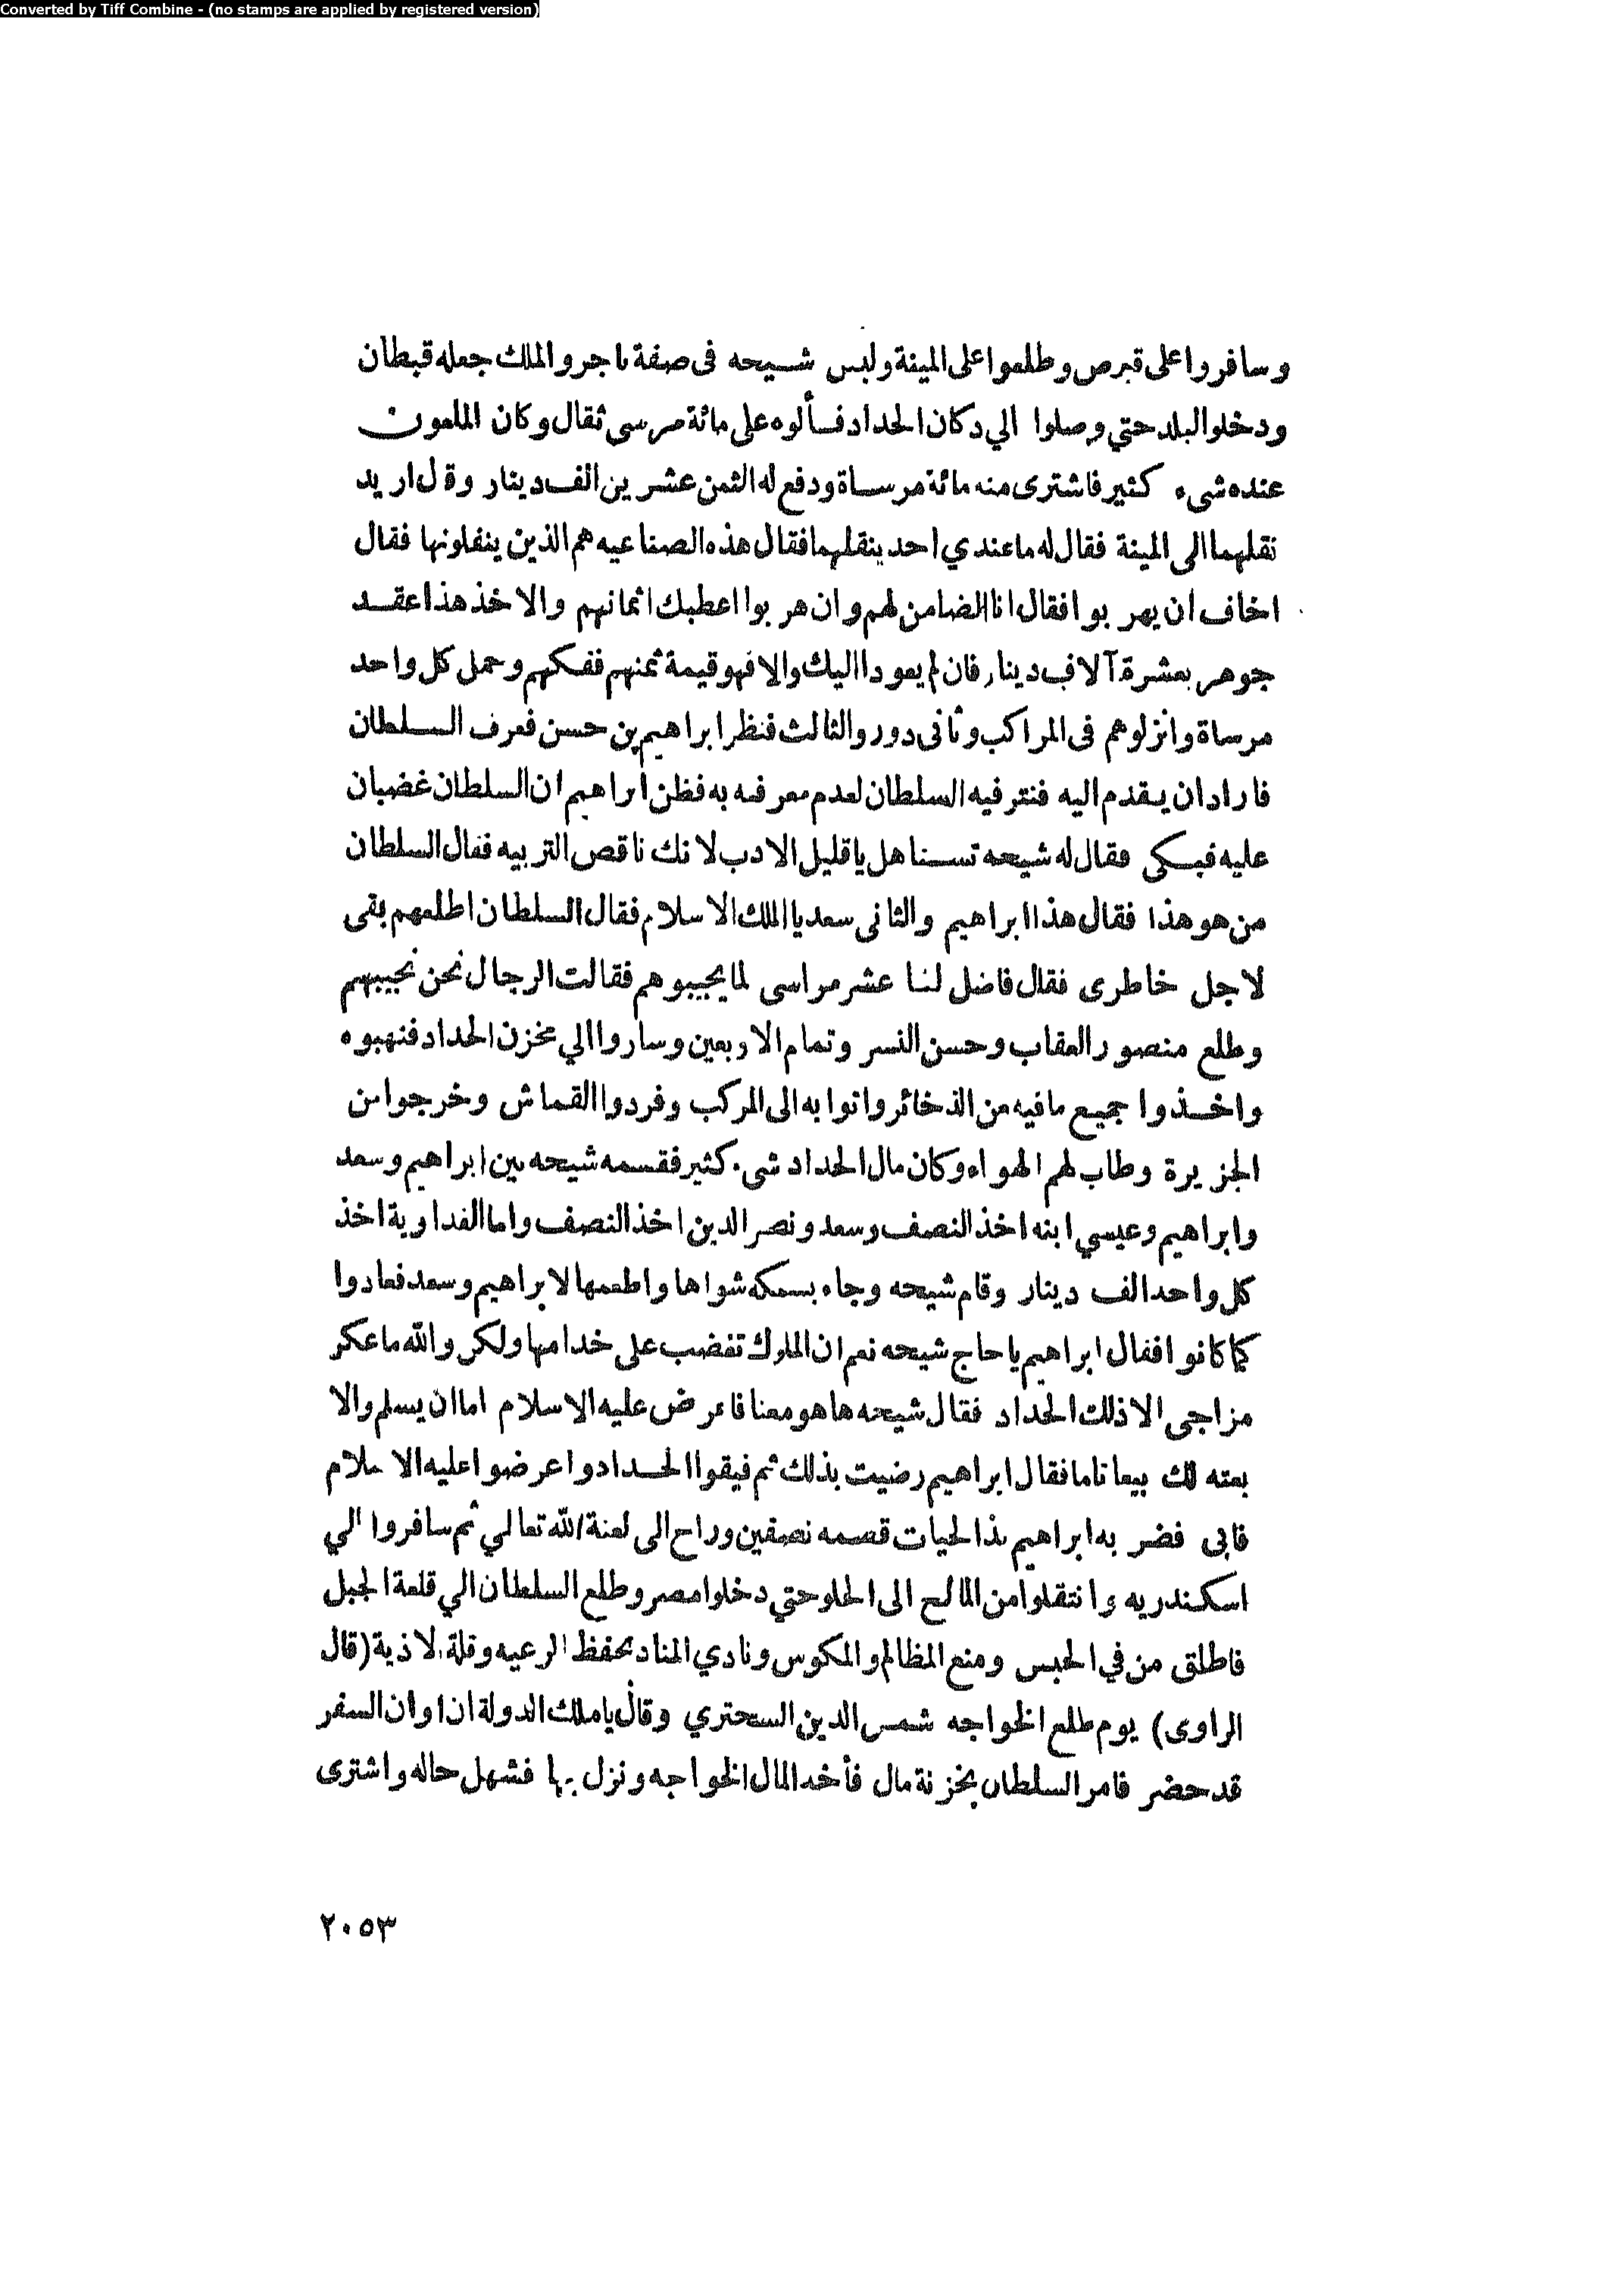 Converted by Tiff Combine - (no stamps are applied by registered version)
وسافروا على قبرص وطلعوا على المينة ولبس شيحه فى صفة تاجر والملك جعله قبطان
ودخلوا البلد حتي وصلوا الي دكان الحداد فسألوه على مائة مرسى ثقال وكان الملعون
عنده شىء كثير فاشترى منه مائة مرساة ودفع له الثمن عشرين الف دينار وقال اريد
نقلهما الى المينة فقال له ما عندي احد ينقلهما فقال هذه الصناعيه هم الذين ينقلونها فقال
اخاف ان يهربوا فقال انا الضامن لهم وان هربوا اعطيك اثمانهم والا خذ هذا عقد
جوهر بعشرة آلاف دينار فان لم يعودا اليك والا فهو قيمة ثمنهم ففكهم وحمل كل واحد
مرساة وانزلوهم فى المراكب وثانى دور والثالث فنظر ابراهيم بن حسن فعرف السلطان
فاراد ان يقدم اليه فنتر فيه السلطان لعدم معرفته به فظن ابراهيم ان السلطان غضبان
عليه فبكى فقال له شيحه تستاهل يا قليل الادب لانك ناقص التربيه فقال السلطان
من هو هذا فقال هذا ابراهيم والثانى سعد يا الملك الاسلام فقال السلطان اطلعهم بقى
لاجل خاطرى فقال فاضل لنا عشر مراسى لما يجيبوهم فقالت الرجال نحن نجيبهم
وطلع منصور العقاب وحسن النسر وتمام الاربعين وساروا الي مخزن الحداد فنهبوه
واخذوا جميع ما فيه من الذخائر واتوا به الى المركب وفردوا القماش وخرجوا من
الجزيرة وطاب لهم الهواء وكان مال الحداد شىء كثير فقسمه شيحه بين ابراهيم وسعد
وابراهيم وعيسي ابنه اخذ النصف وسعد ونصر الدين اخذ النصف واما الفداوية اخذ
كل واحد الف دينار وقام شيحه وجاء بسمكه شواها واطعمها لابراهيم وسعد فعادوا
كما كانوا فقال ابراهيم يا حاج شيحه نعم ان الملوك تغضب على خدامها ولكن والله ما عكر
مزاجى الا ذلك الحداد فقال شيحه ها هو معنا فاعرض عليه الاسلام اما ان يسلم والا
بعته لك بيعا تاما فقال ابراهيم رضيت بذلك ثم فيقوا الحداد واعرضوا عليه الاسلام
فابى فضربه ابراهيم بذا الحيات قصمه نصفين وراح الى لعنة الله تعالي ثم سافروا الي
اسكندريه وانتقلوا من المالح الى الحلو حتي دخلوا مصر وطلع السلطان الي قلعة الجبل
فاطلق من في الحبس ومنع المظالم والمكوس ونادي المناد بحفظ الرعيه وقلة الاذية (قال
الراوى) يوم طلع الخواجه شمس الدين السحتري وقال يا ملك الدولة ان اوان السفر
قد حضر فامر السلطان بخزنة مال فأخد المال الخواجه ونزل بها فشهل حاله واشترى
٢٠٥٣